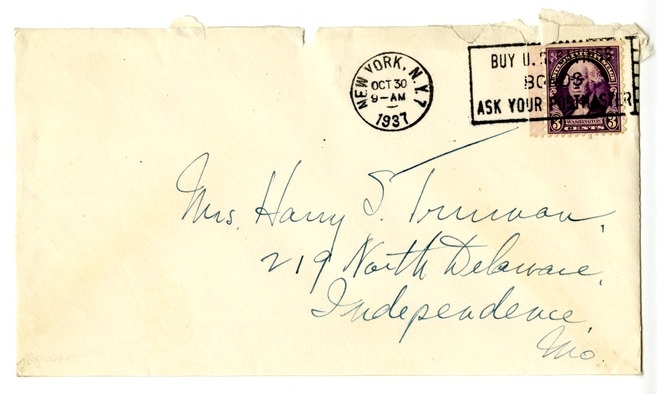 NEW YORK, N.Y. 7
OCT 30
9-AM
1937
BUY U.S.
BONDS
ASK YOUR POSTMASTER
3 WASHINGTON 3
CENTS
Mrs. Harry S. Truman,
219 North Delaware,
Independence
Mo.